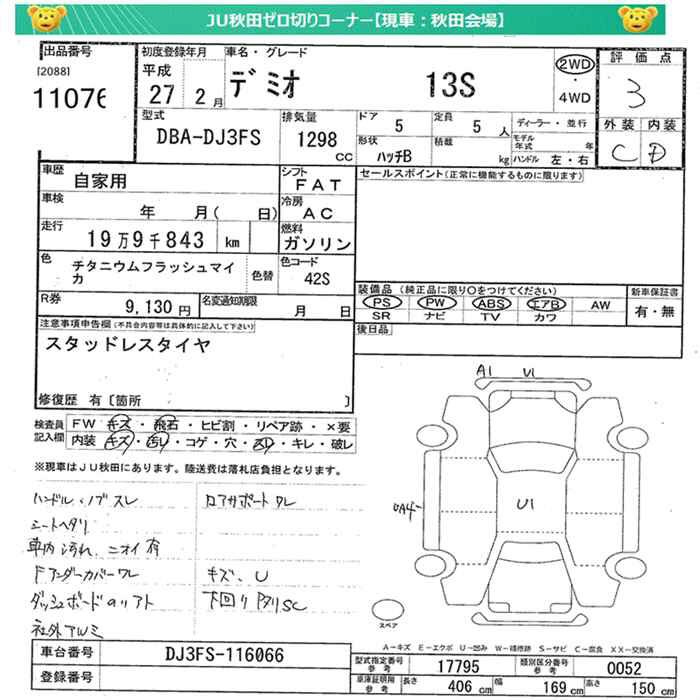 JU秋田ゼロ切りコーナー【現車：秋田会場】
出品番号
[2088]
11076
初度登録年月
平成 27 年 2 月
車名・グレード
デミオ 13S
2WD
・
4WD
評価点
3
型式
DBA-DJ3FS
排気量
1298 CC
ドア 5
定員 5 人
形状 ハッチB
積載 kg
ディーラー・並行
モデル年式 年
ハンドル 左・右
外装 内装
C D
車歴 自家用
シフト FAT
車検 年 月( 日)
冷房 AC
走行 19万9千843 km
燃料 ガソリン
色 チタニウムフラッシュマイカ
色替
色コード 42S
R券 9,130円
名変通知期限 月 日
セールスポイント(正常に機能するものに限ります)
装備品 (純正品に限り○をつけてください)
PS PW ABS エアB AW
SR ナビ TV カワ
新車保証書
有・無
後日品
注意事項申告欄 (不具合内容等は具体的に記入して下さい)
スタッドレスタイヤ
修復歴 有〔箇所 〕
検査員記入欄
FW キズ・飛石・ヒビ割・リペア跡・×要
内装 キズ・汚レ・コゲ・穴・スレ・キレ・破レ
※現車はJU秋田にあります。陸送費は落札店負担となります。
ハンドル・ノブスレ
シートヘタリ
車内汚れ、ニオイ有
Fアンダーカバーワレ
ダッシュボード
社外アルミ
ロアサポートワレ
キズ、U
下回り
A1 U1
U1
スペア
A－キズ E－エクボ U－凹み W－補修跡 S－サビ C－腐食 XX－交換済
車台番号 DJ3FS-116066
登録番号
型式指定番号 参考 17795
類別区分番号 参考 0052
車庫証明用 参考 長さ 406 cm 幅 169 cm 高さ 150 cm